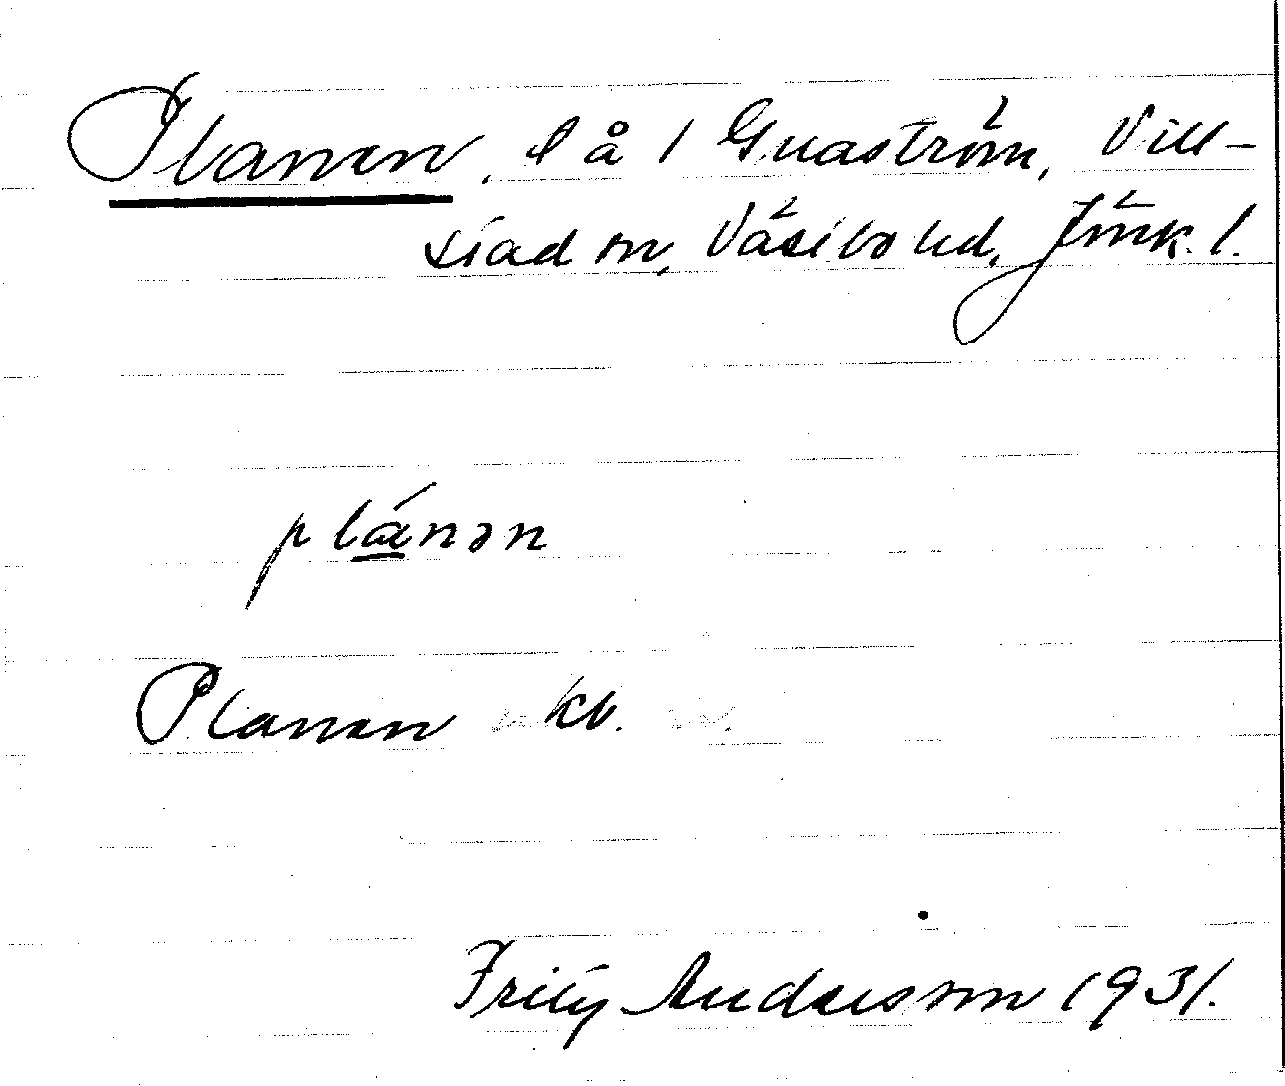 Planen, l å 1 Gnaström, Vill-
stad sn, Västbo hd, Jönk. l.
plánən
Planen kb.
Fritz Andersson 1931.